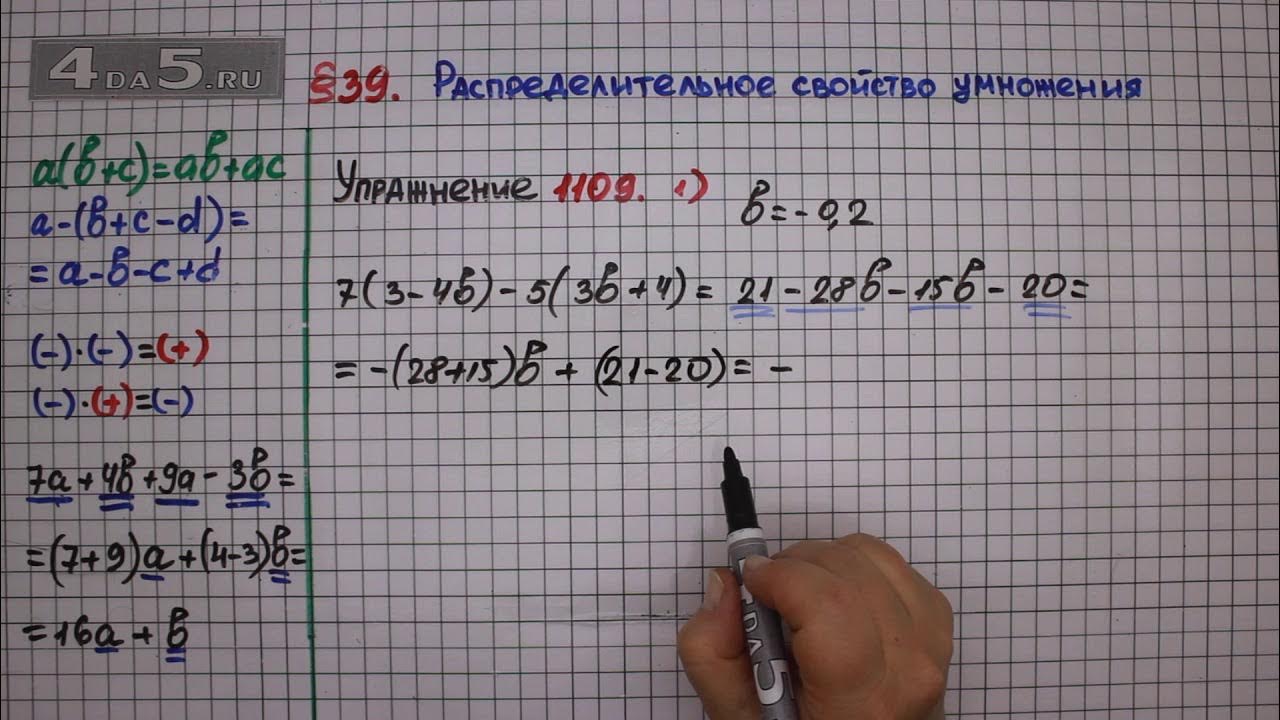 4DA5.RU
§39. Распределительное свойство умножения
a(b+c)=ab+ac
a-(b+c-d)=
=a-b-c+d
(-)·(-)=(+)
(-)·(+)=(-)
7a+4b+9a-3b=
=(7+9)a+(4-3)b=
=16a+b
Упражнение 1109. 1) b=-0,2
7(3-4b)-5(3b+4)=21-28b-15b-20=
=-(28+15)b+(21-20)=-
4DA5